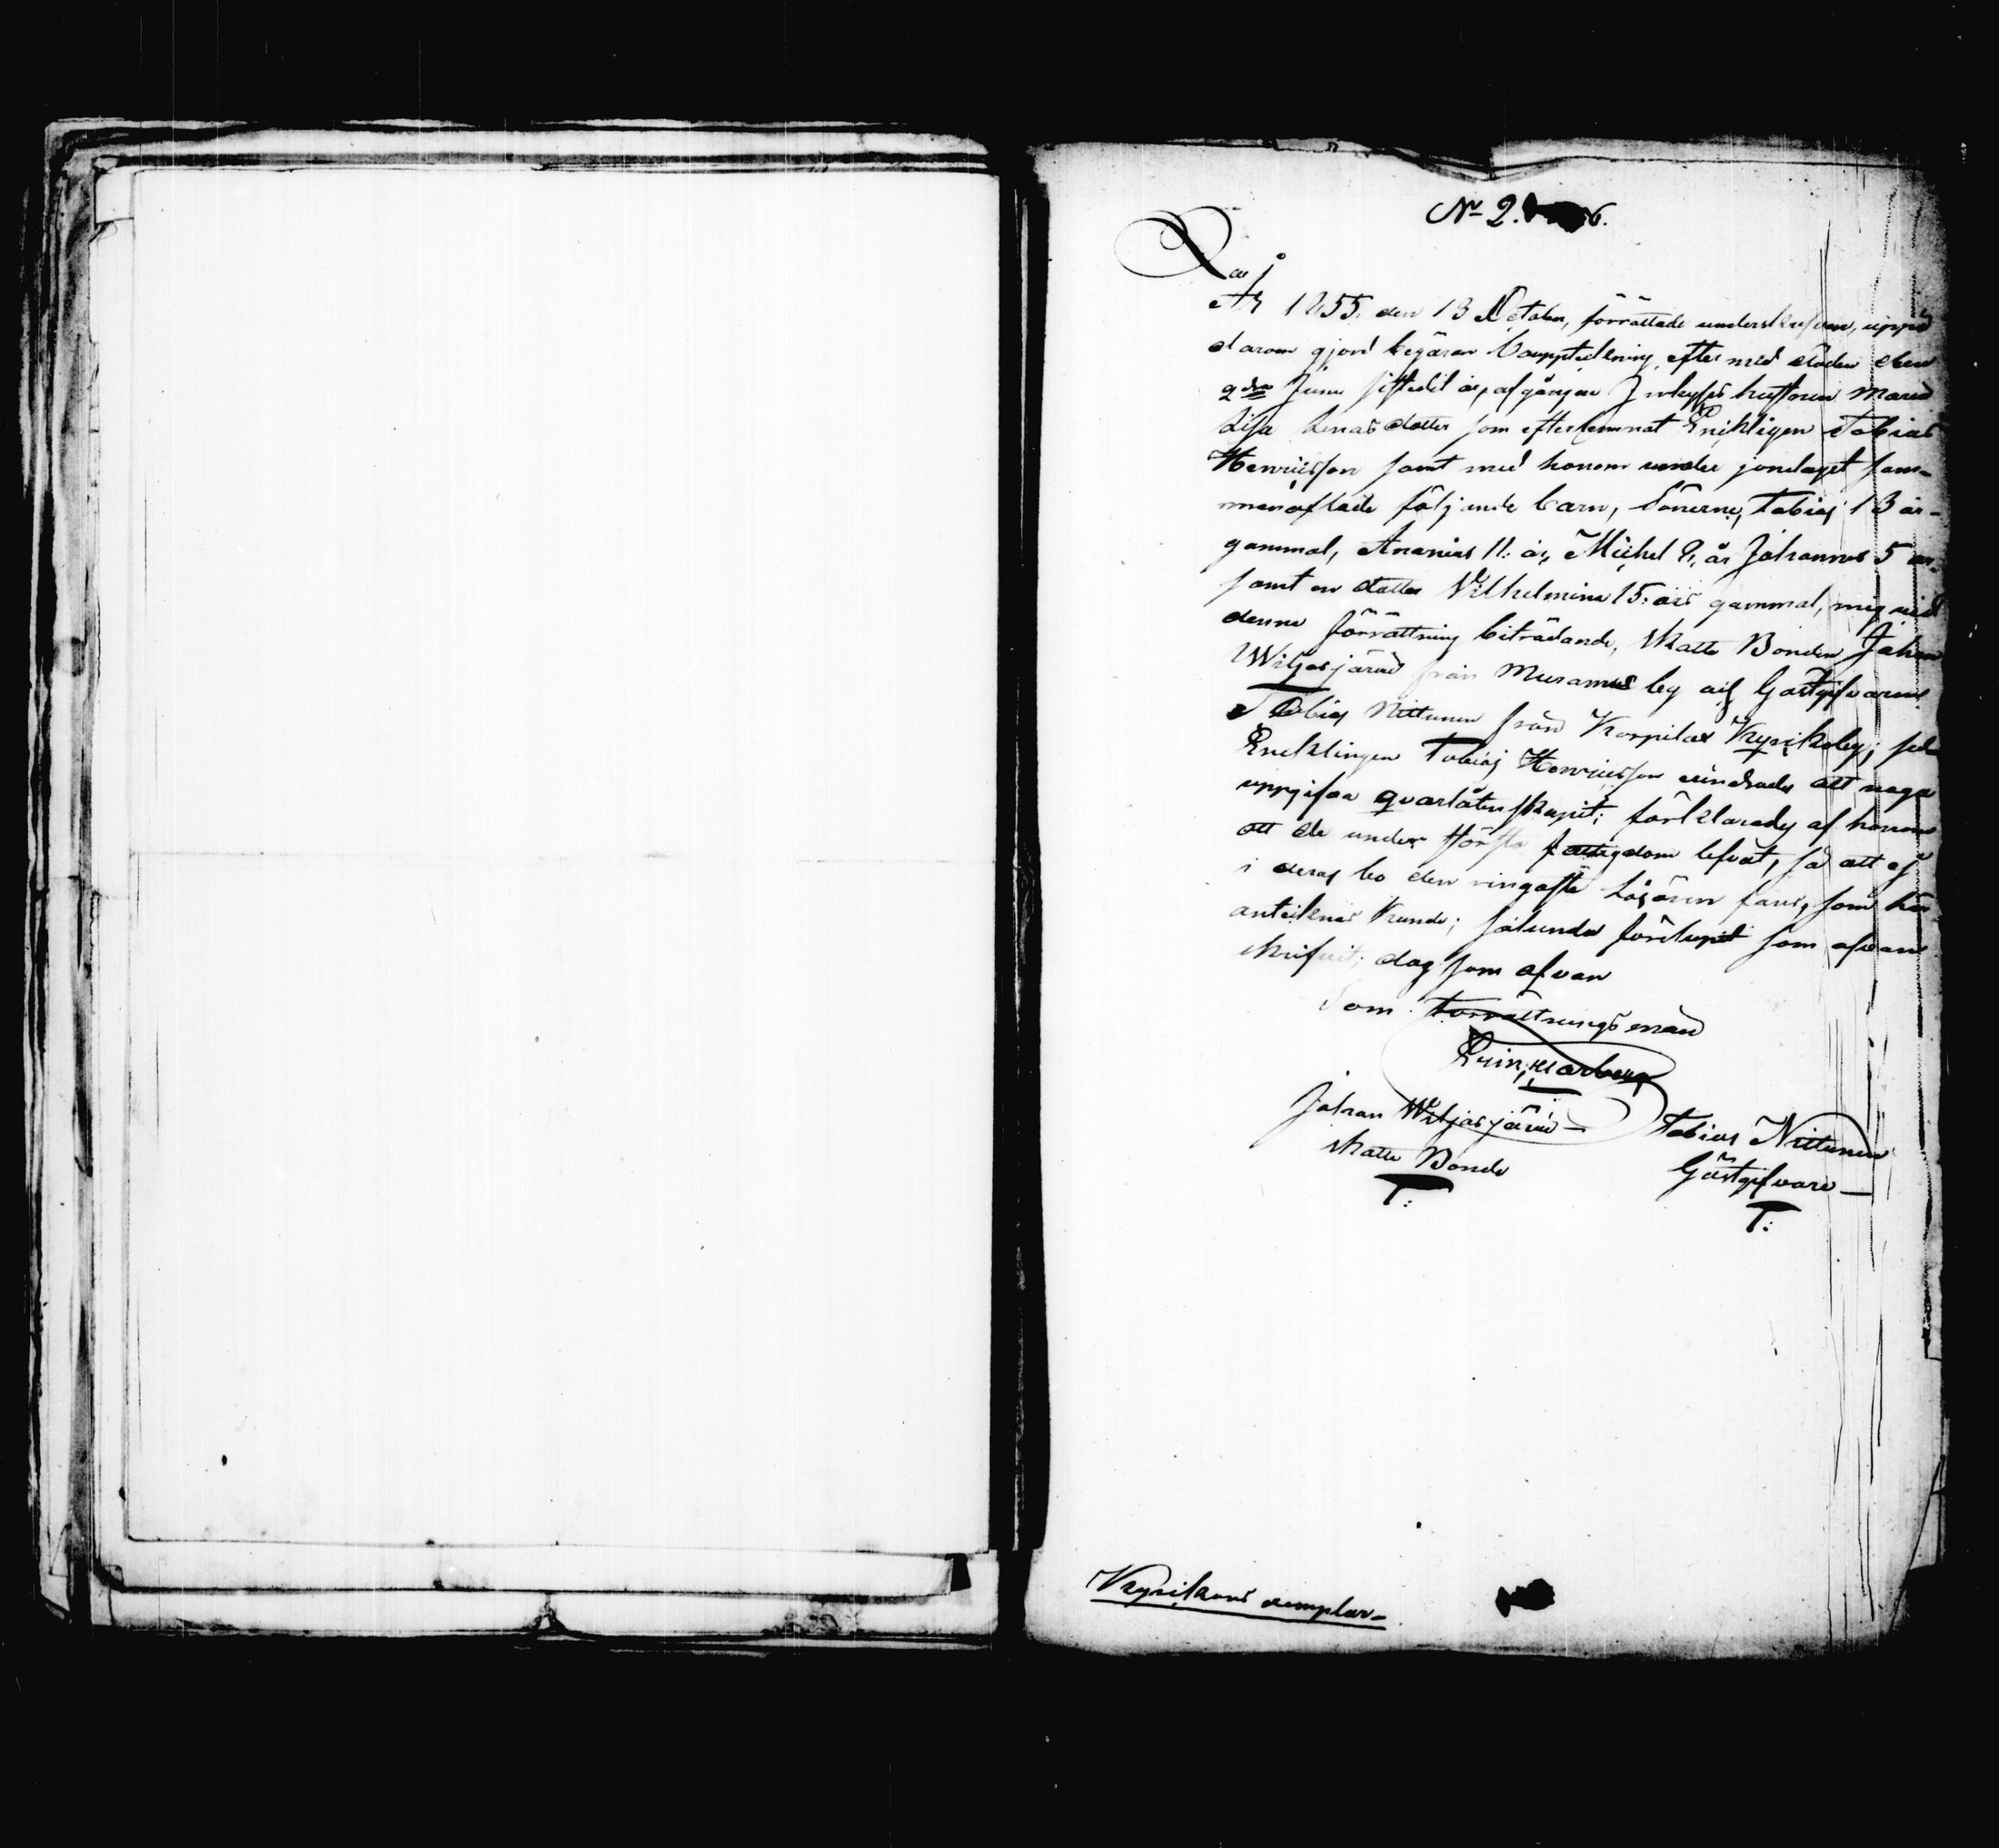 No 2.
År 1855. den 13 October, förrättade underskrefven, uppå
darom gjord begäran Bouppteckning, efter med döden den
9de Juni sistledit år, afgångne Inhyses hustrun Maria
Lisa Lenasdotter som efterlemnat Enklingen Tobias
Henricsson samt med honom under jondaget sam-
manaflade följande barn, Sönerne, Tobias 13 år-
gammal, Ananias 11. år, Michel 8. år Johannes 5 år-
samt en dotter Wilhelmina 15. års gammal, mig vid
denne förrättning biträdande, Skatte Bonden Johan
Wiljasjärvi från Murames by och Gästgifvaren
Tobias Nittunen från Korpilax Kyrkoby; och
Encklingen Tobias Henricsson vindrades att noga
uppgifva qvarlåtenskapet; förklarades af honom
att de under största fattigdom lefvat, så att ej
i deras bo den ringaste Lösören fans, som här
antecknas kunde; sålunda förelupit som ofvan
skrifvit; dag som ofvan
Som Förrättningsman
Johan Wiljasjärvi — Tobias Nittunen
Skatte Bonde Gästgifvare —
T: T:
Kyrikans exemplar-